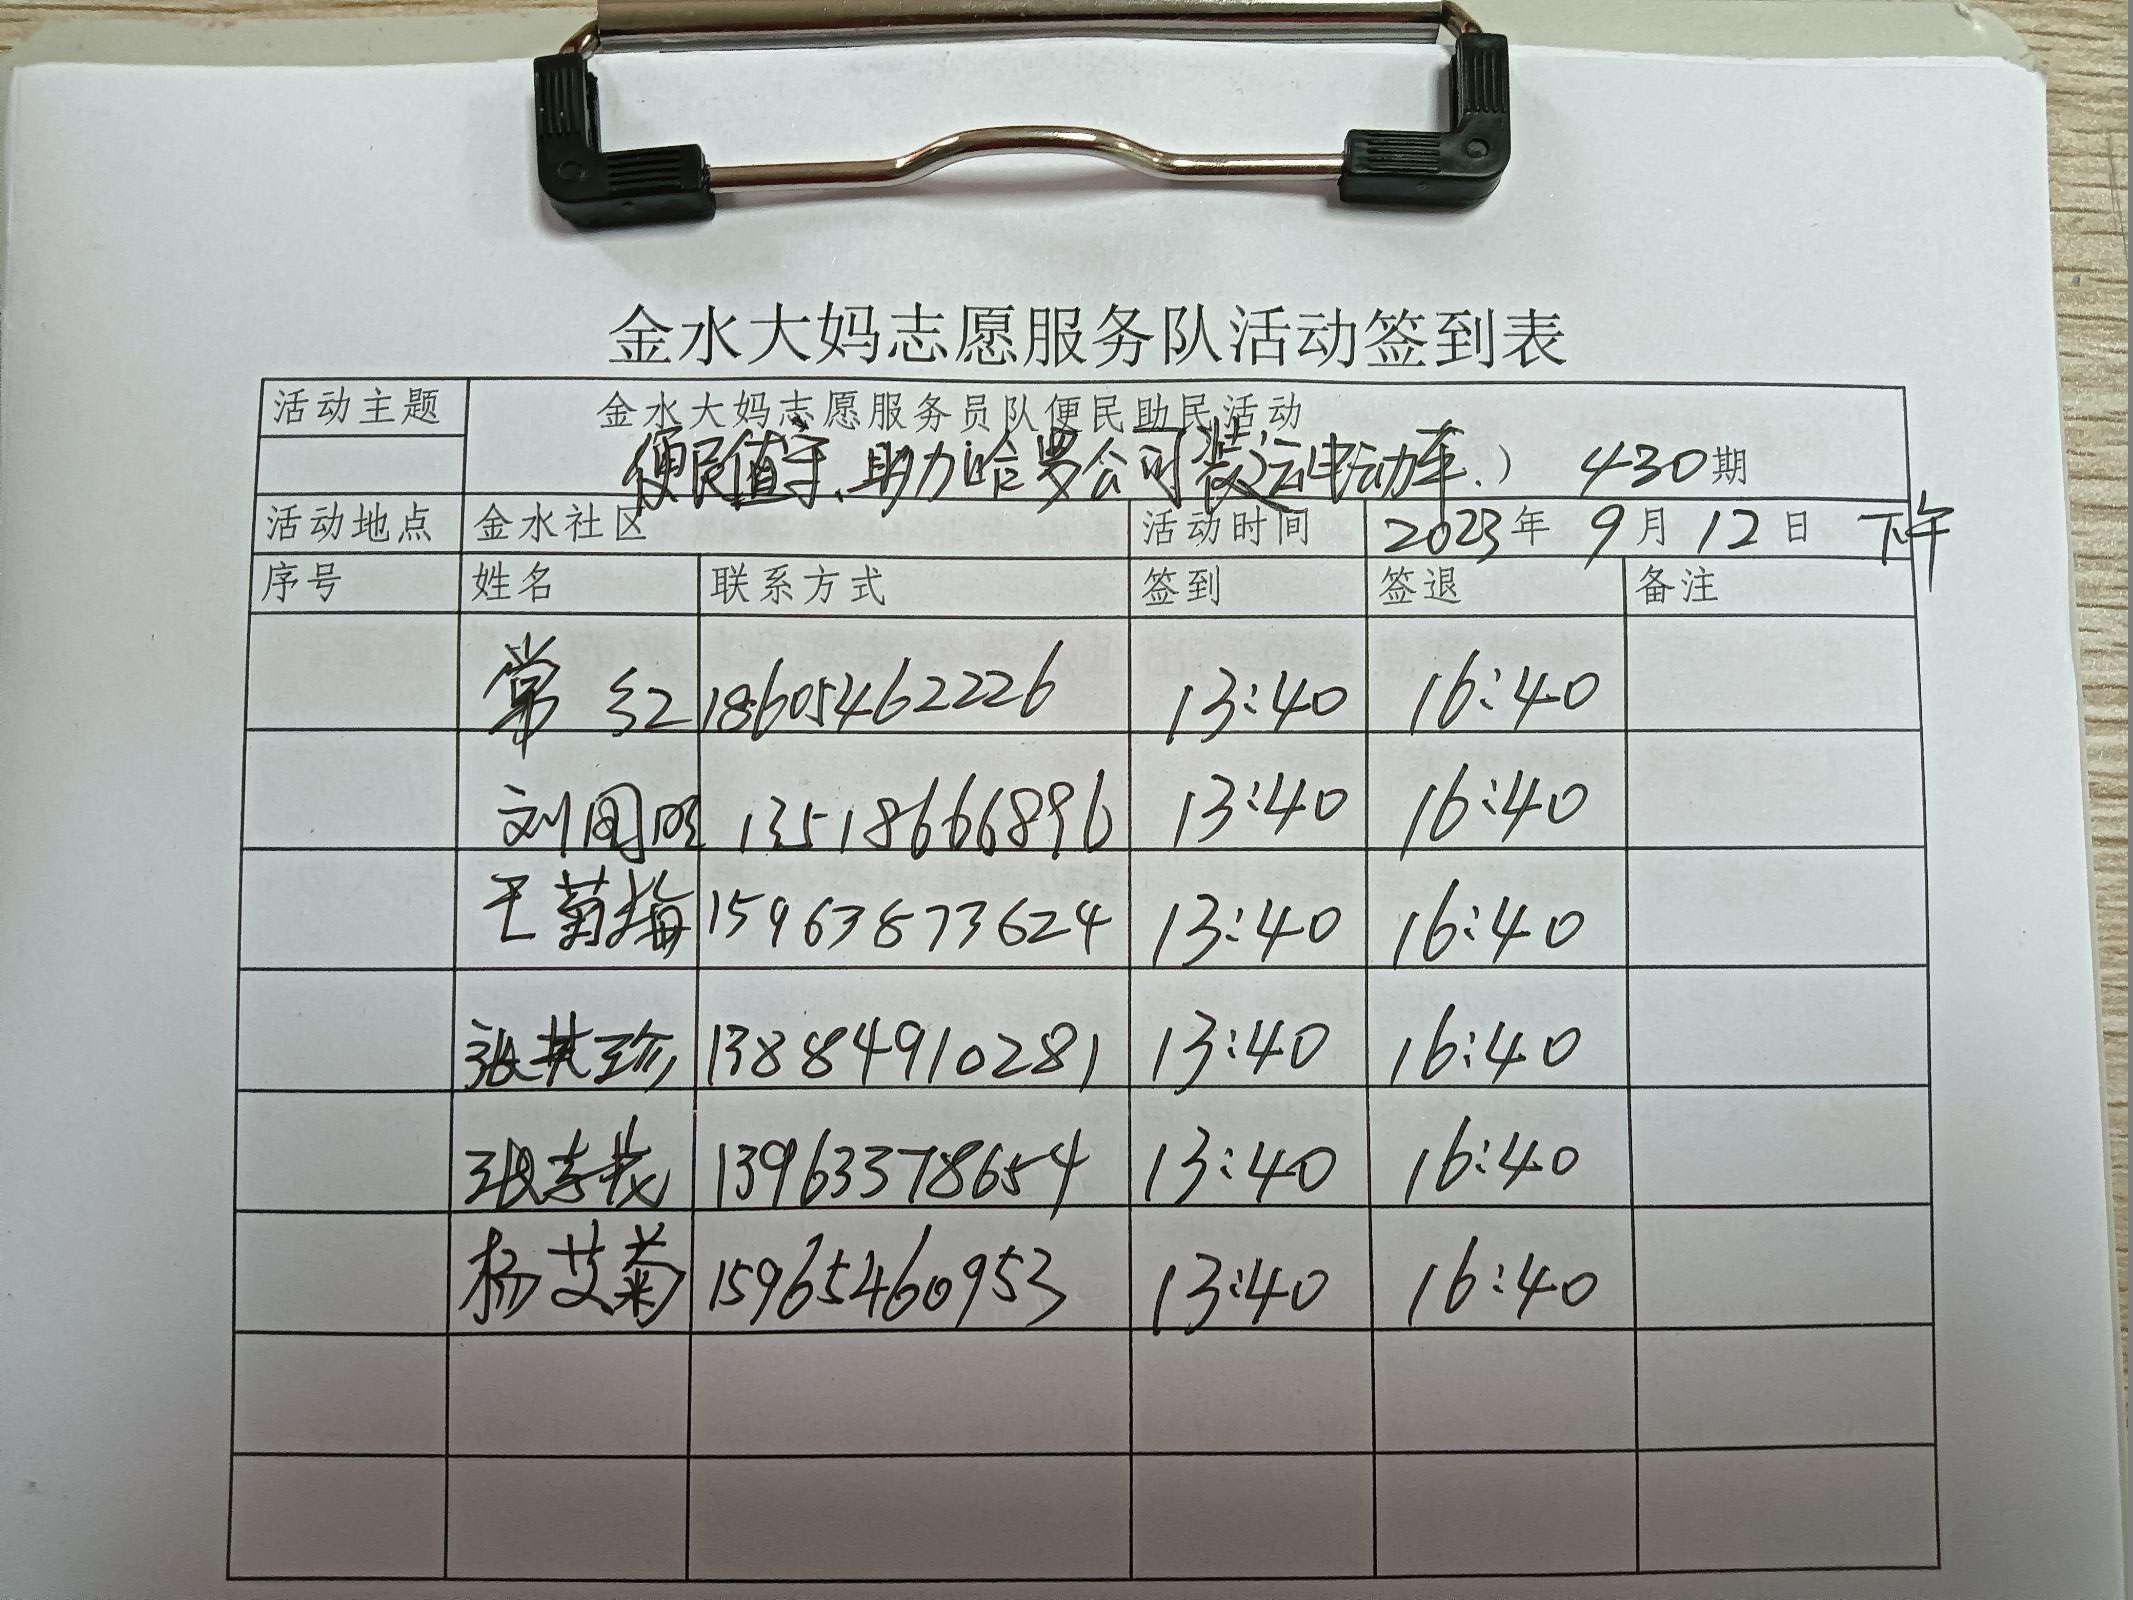 金水大妈志愿服务队活动签到表
活动主题 金水大妈志愿服务员队便民助民活动
便民值守、助力哈罗公司装运电动车.） 430期
活动地点 金水社区 活动时间 2023年 9月 12日 下午
序号 姓名 联系方式 签到 签退 备注
常红 18605462226 13:40 16:40
刘国明 13518666896 13:40 16:40
王菊梅 15963873624 13:40 16:40
张其珍 13884910281 13:40 16:40
张 13963378654 13:40 16:40
杨艾菊 15965460953 13:40 16:40